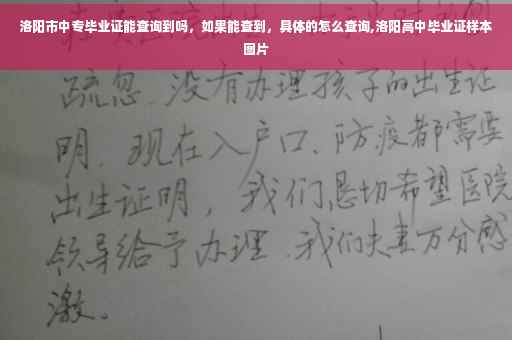 洛阳市中专毕业证能查询到吗，如果能查到，具体的怎么查询,洛阳高中毕业证样本
图片
疏忽.没有办理孩子的出生证
明.现在入户口、防疫都需要
出生证明，我们恳切希望医院
领导给予办理.我们夫妻万分感
激.